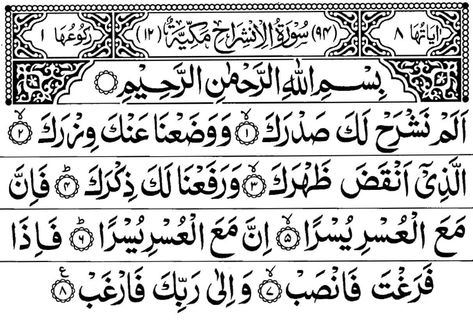 اٰیَاتُهَا ٨ (٩٤) سُوْرَةُ الْاِنْشِرَاحِ مَكِّيَّةٌ (١٢) رُكُوْعُهَا ١
بِسْمِ اللهِ الرَّحْمٰنِ الرَّحِيْمِ
اَلَمْ نَشْرَحْ لَكَ صَدْرَكَ ۙ﴿١﴾ وَوَضَعْنَا عَنْكَ وِزْرَكَ ۙ﴿٢﴾
الَّذِيْٓ اَنْقَضَ ظَهْرَكَ ۙ﴿٣﴾ وَرَفَعْنَا لَكَ ذِكْرَكَ ؕ﴿٤﴾ فَاِنَّ
مَعَ الْعُسْرِ يُسْرًا ۙ﴿٥﴾ اِنَّ مَعَ الْعُسْرِ يُسْرًا ؕ﴿٦﴾ فَاِذَا
فَرَغْتَ فَانْصَبْ ۙ﴿٧﴾ وَاِلٰى رَبِّكَ فَارْغَبْ ﴿٨﴾ ع